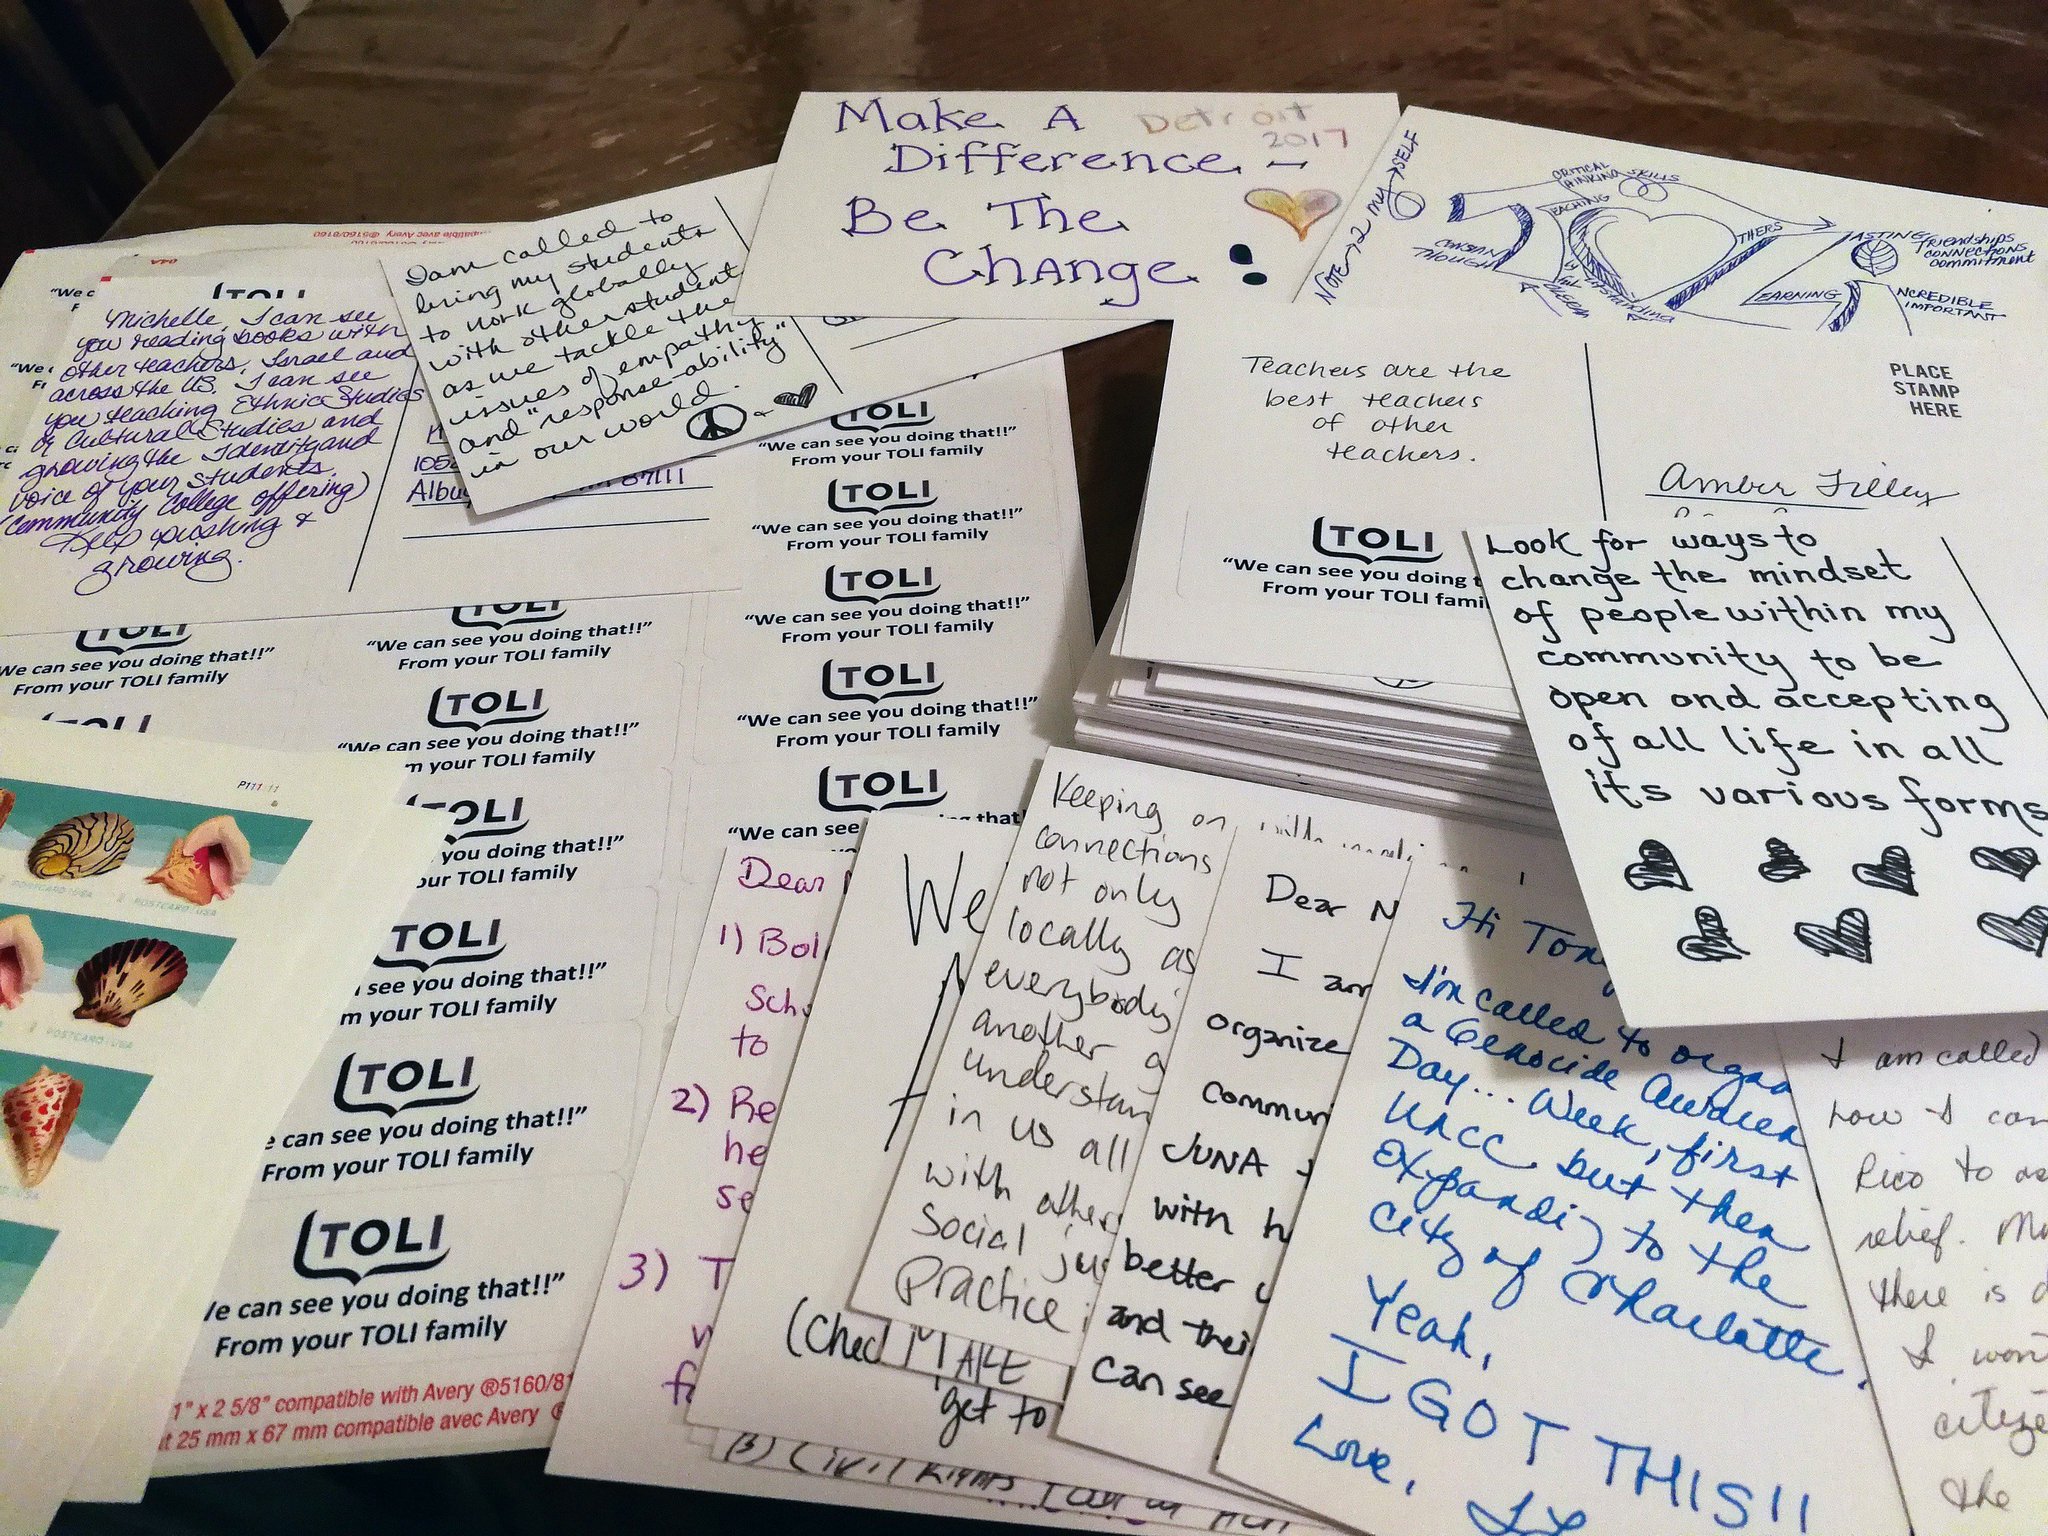 Make A
Detroit
2017
Difference –
Be The
Change
Note 2 my SELF
CRITICAL
THINKING SKILLS
EACHING
THERS
THOUGH
ASTING
Friendships
CONNECTIONS
COMMITMENT
EARNING
NCREDIBLE
IMPORTANT
I am called to
bring my students
to work globally
with other students
as we tackle the
issues of empathy
and "response-ability"
in our world.
Michelle, I can see
you reading books with
other teachers, Israel and
across the US. I can see
you teaching Ethnic Studies
or Cultural Studies and
growing the Identity and
voice of your students.
(Community College offering)
Keep pushing &
growing.
105
Albu
87111
Teachers are the
best teachers
of other
teachers.
PLACE
STAMP
HERE
Amber Tilley
TOLI
"We can see you doing t
From your TOLI fami
Look for ways to
change the mindset
of people within my
community to be
open and accepting
of all life in all
its various forms
TOLI
"We can see you doing that!!"
From your TOLI family
TOLI
"We can see you doing that!!"
From your TOLI family
TOLI
"We can see you doing that!!"
From your TOLI family
TOLI
"We can see you doing that!!"
From your TOLI family
TOLI
"We can see
that
TOLI
"We can see you doing that!!"
From your TOLI family
TOLI
"We can see you doing that!!"
From your TOLI family
TOLI
"We can see you doing that!!"
m your TOLI family
TOLI
you doing that!!"
our TOLI family
TOLI
see you doing that!!"
m your TOLI family
TOLI
e can see you doing that!!"
From your TOLI family
TOLI
We can see you doing that!!"
From your TOLI family
1" x 2 5/8" compatible with Avery ®5160/81
25 mm x 67 mm compatible avec Avery
P111 11
POSTCARD USA
POSTCARD USA
POSTCARD USA
Dear
1) Bol
Sch
to
2) Re
he
se
3) T
We
(Chec
MAKE
get to
Civil Rights
Keeping on
connections
not only
locally as
everybody
another
understan
in us all
with other
Social jus
Practice
Dear N
I am
organize
commun
JUNA
with h
better
and thei
can see
Hi Tony
I'm called to organ
a Genocide Awaren
Day... Week, first
UNCC but then
expanding to the
City of Charlotte.
Yeah,
I GOT THIS!!
Love,
I am called
how I can
Rico to
relief.
there is
I won
citize
the